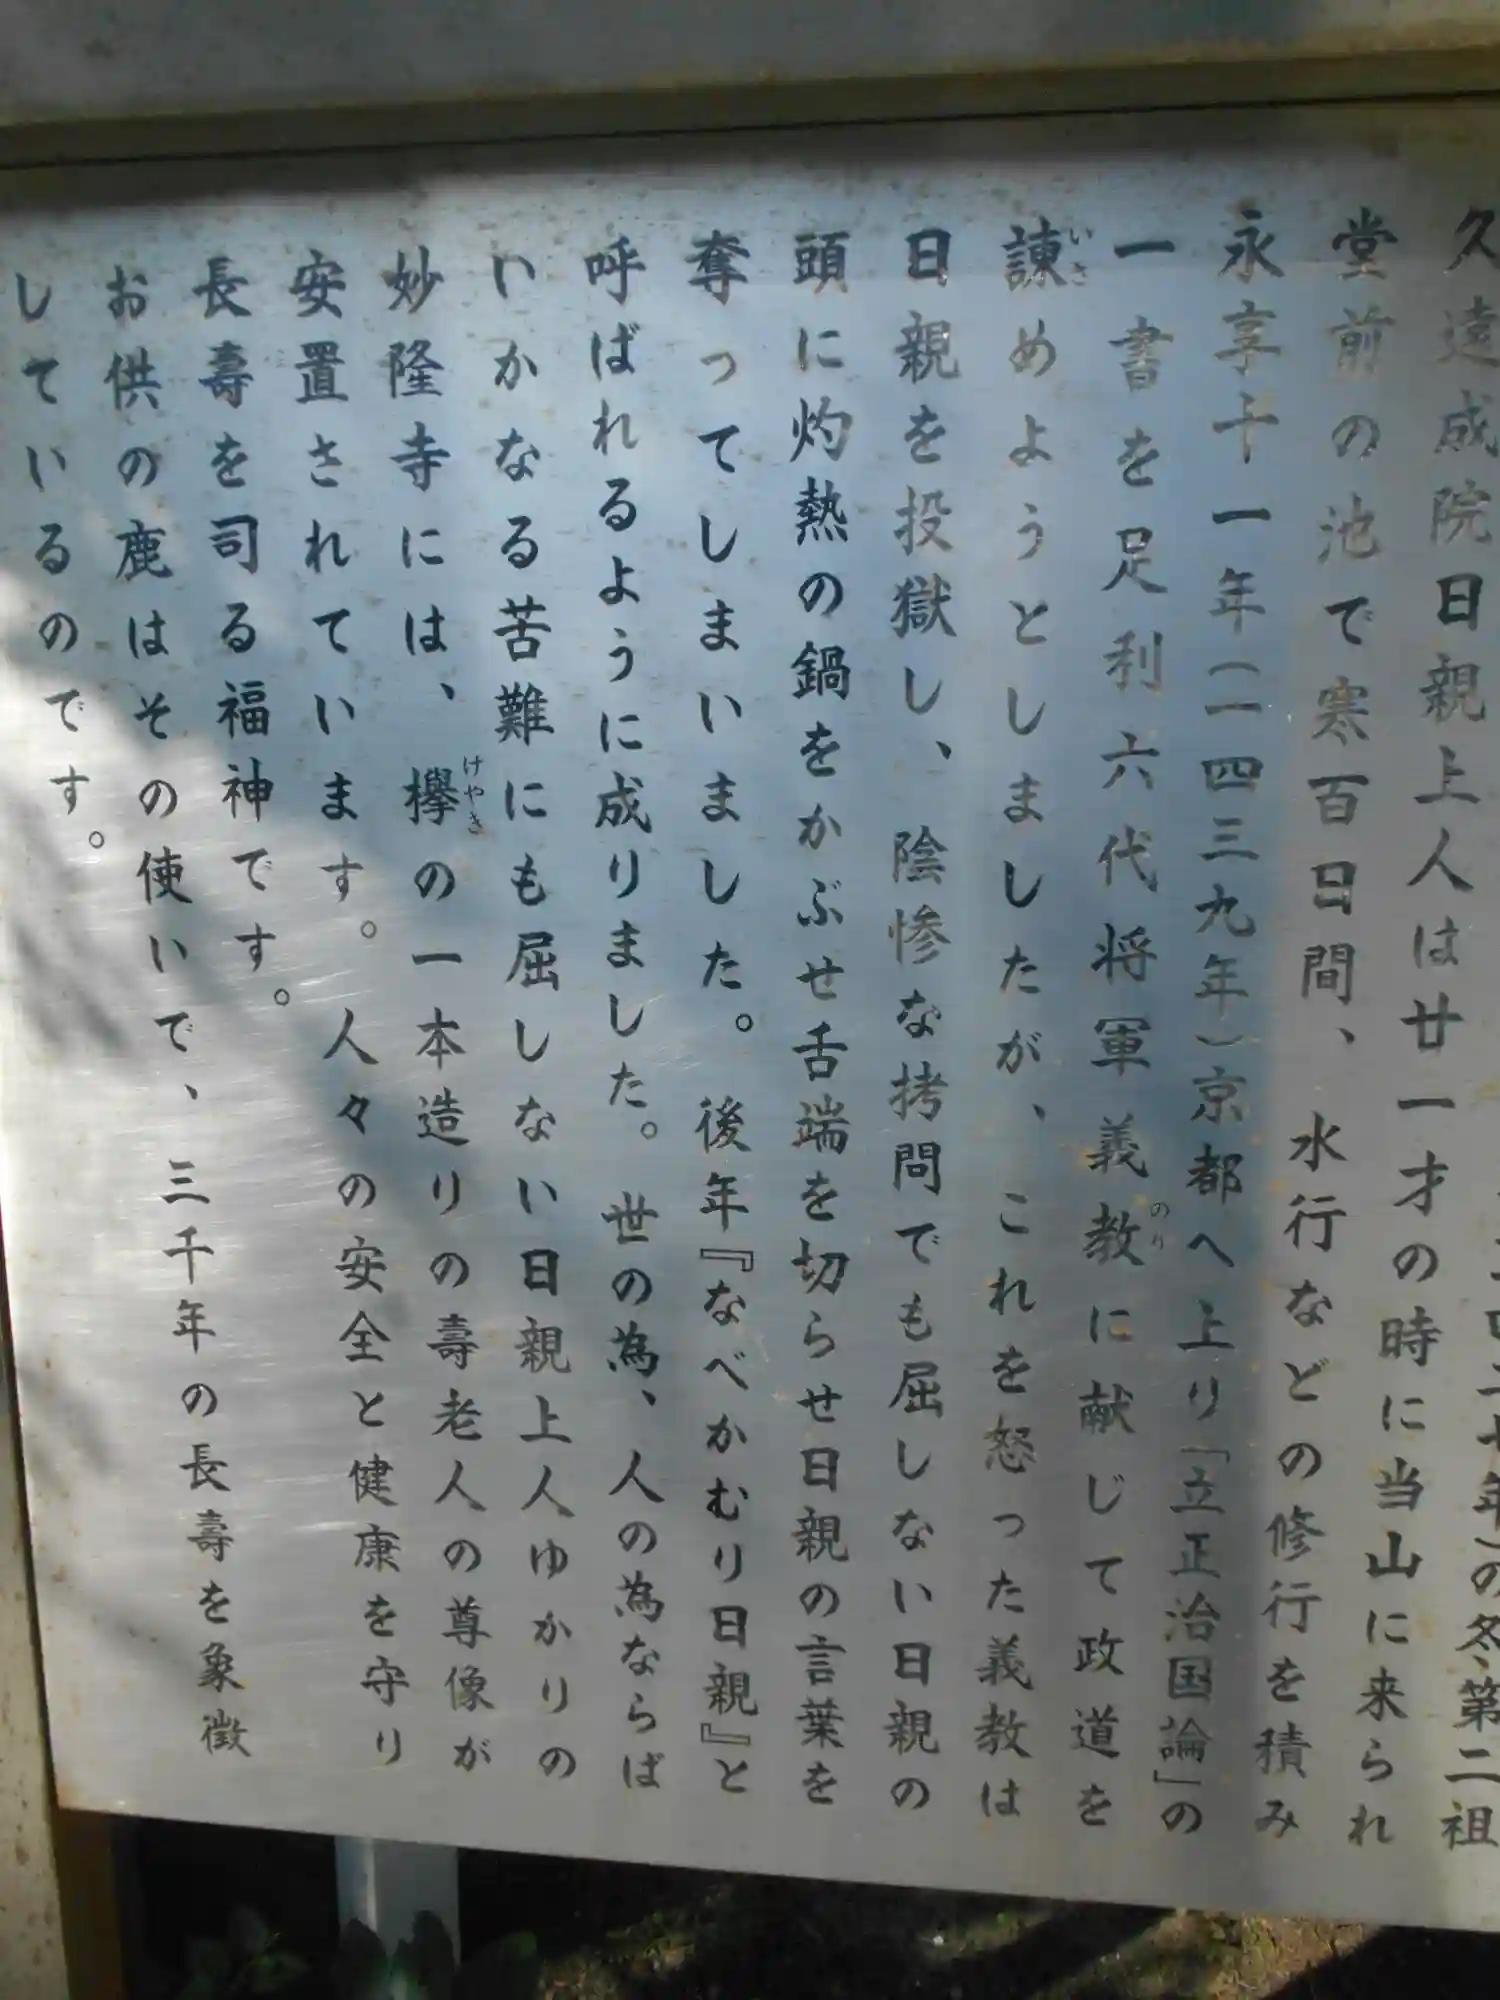 年)の冬、第二祖
久遠成院日親上人は廿一才の時に当山に来られ
堂前の池で寒百日間、水行などの修行を積み
永享十一年(一四三九年)京都へ上り「立正治国論」の
一書を足利六代将軍義教に献じて政道を
のり
諌めようとしましたが、これを怒った義教は
いさ
日親を投獄し、陰惨な拷問でも屈しない日親の
頭に灼熱の鍋をかぶせ舌端を切らせ日親の言葉を
奪ってしまいました。後年『なべかむり日親』と
呼ばれるように成りました。世の為、人の為ならば
いかなる苦難にも屈しない日親上人ゆかりの
妙隆寺には、欅の一本造りの壽老人の尊像が
けやき
安置されています。人々の安全と健康を守り
長壽を司る福神です。
お供の鹿はその使いで、三千年の長壽を象徴
しているのです。